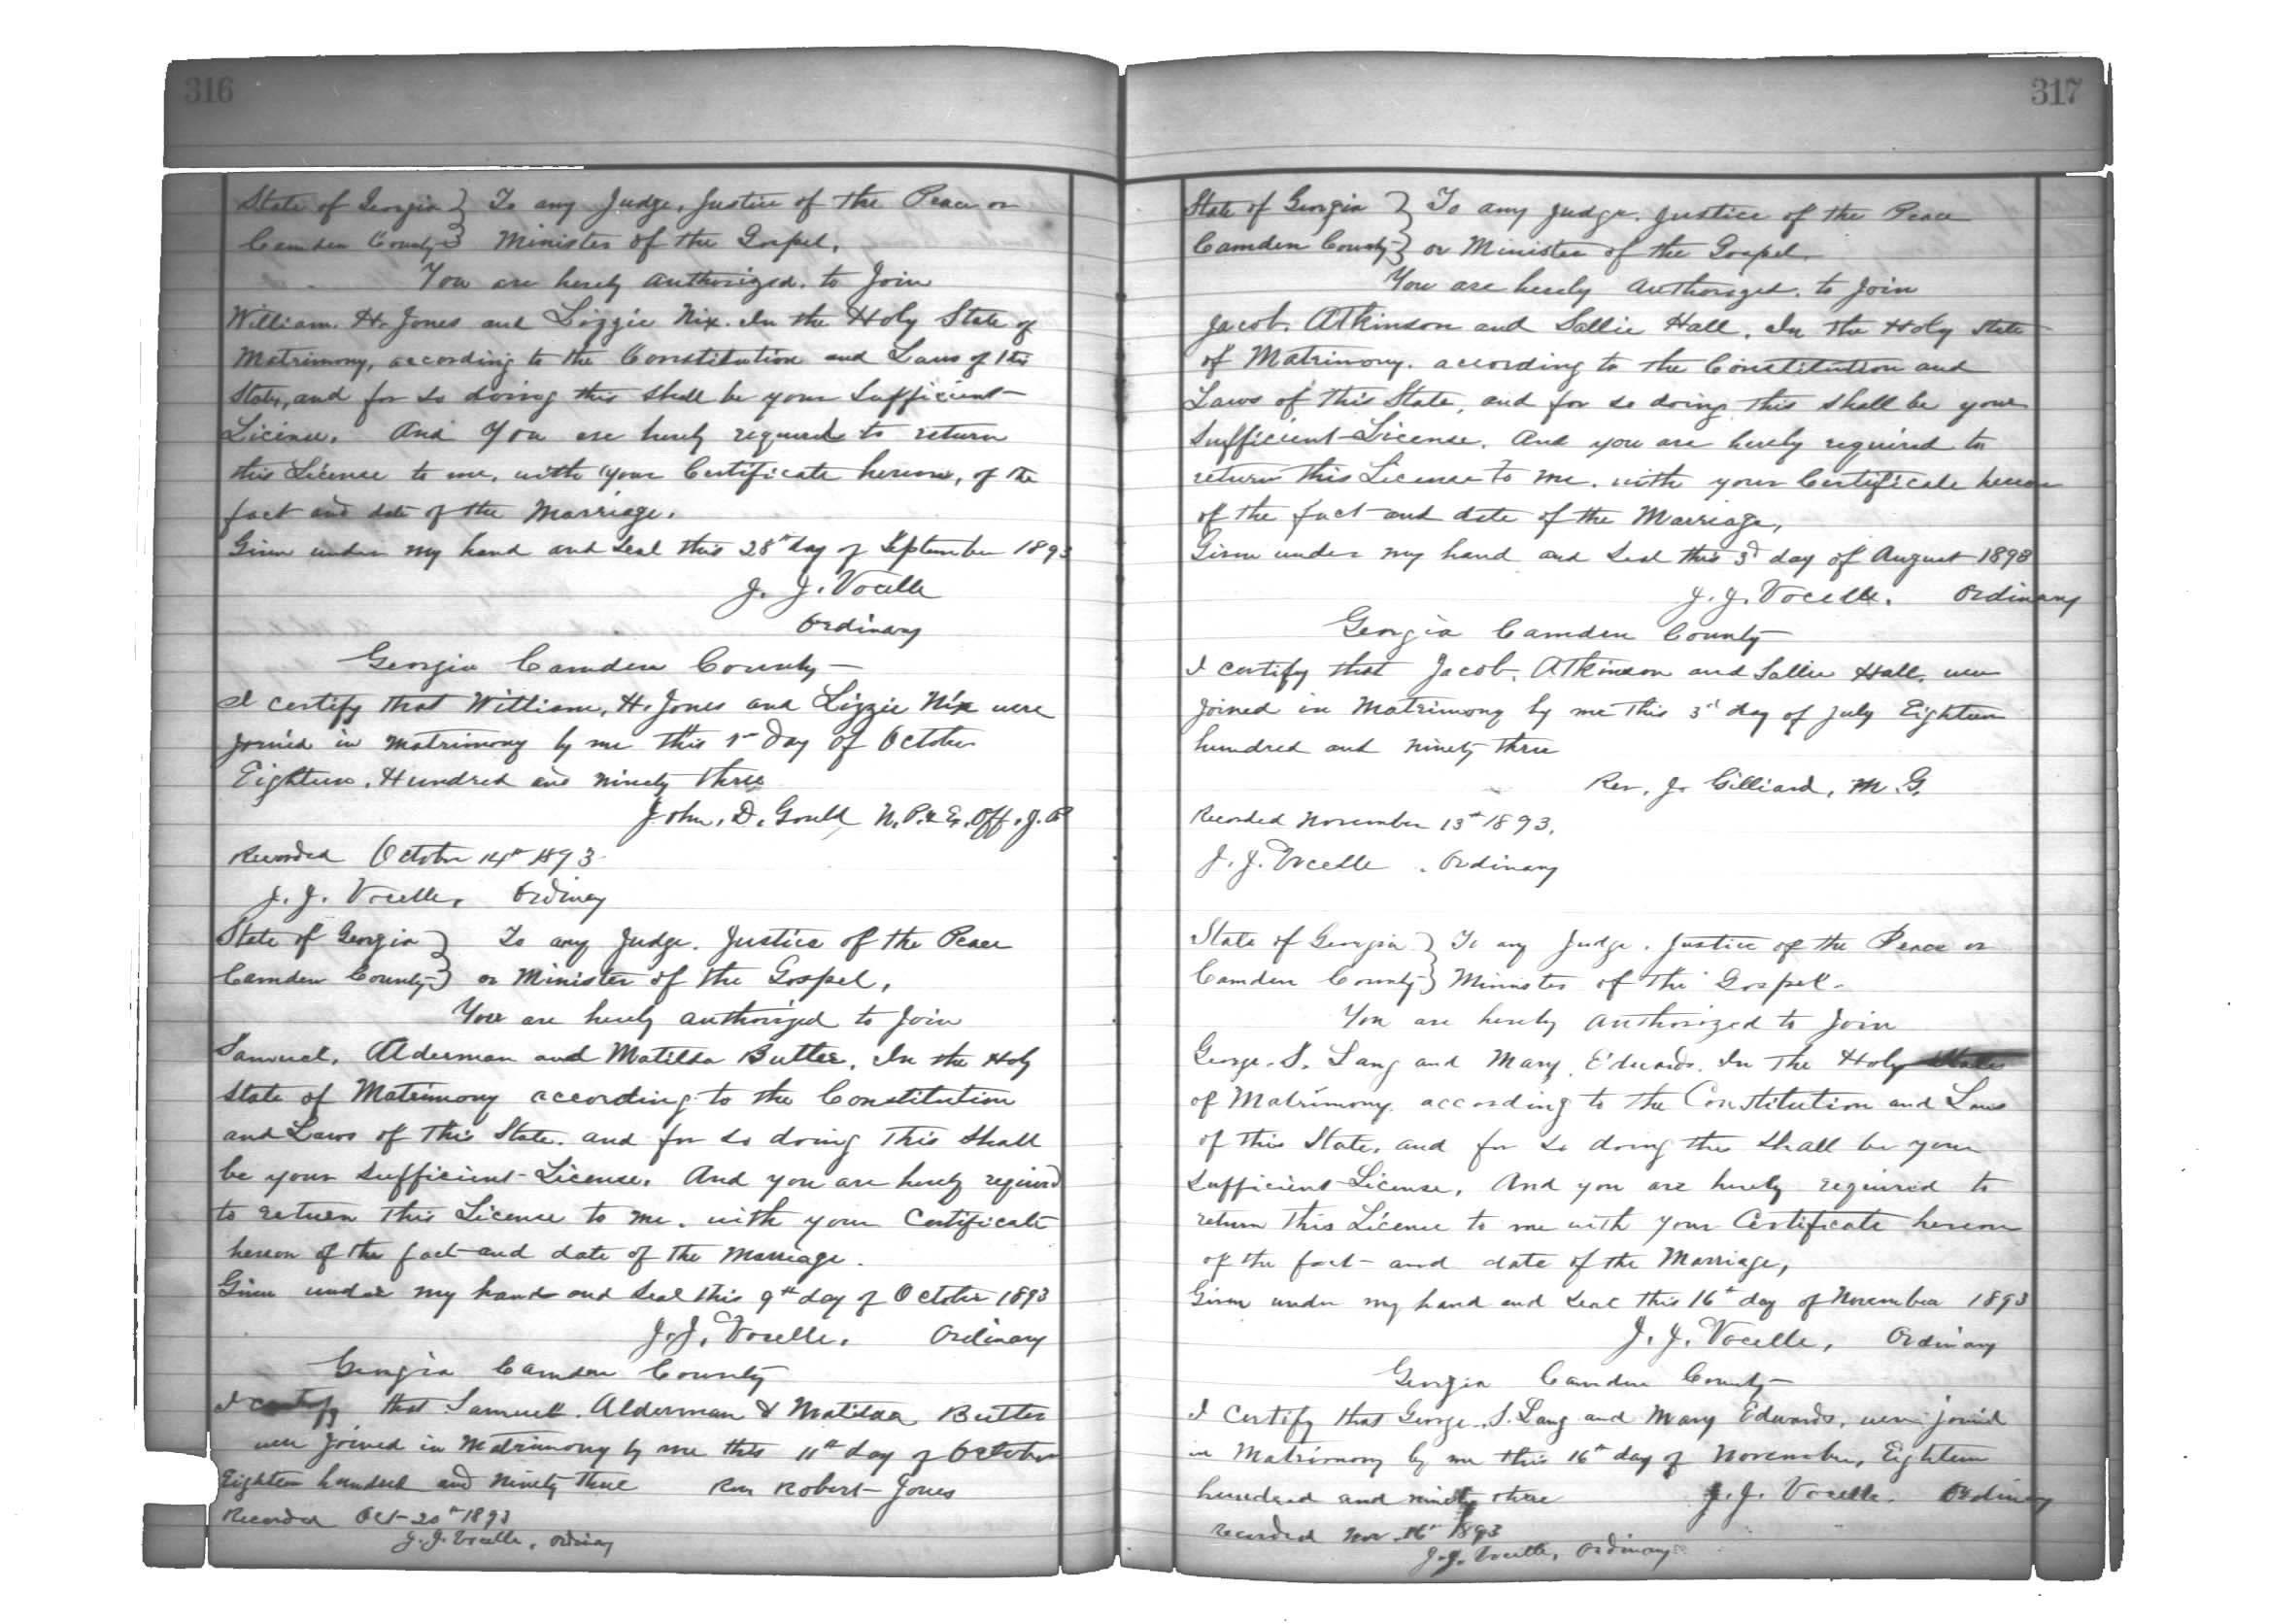 316
State of Georgia } To any Judge, Justice of the Peace or
Camden County } Minister of the Gospel,
You are hereby authorized, to Join
William. H. Jones and Lizzie Nix. In the Holy State of
Matrimony, according to the Constitution and Laws of this
State, and for so doing this shall be your Sufficient
License. And You are hereby required to return
this License to me, with your Certificate hereon, of the
fact and date of the Marriage.
Given under my hand and Seal this 28th day of September 1893
J. J. Vocelle
Ordinary
Georgia Camden County
I certify that William, H. Jones and Lizzie Nix were
joined in matrimony by me this 1st Day of October
Eighteen, Hundred and ninety three
John, D. Gould N. P. & Ex. Off. J. P
Recorded October 14th 1893
J. J. Vocelle, Ordinary
State of Georgia } To any Judge. Justice of the Peace
Camden County } or Minister of the Gospel,
You are hereby authorized to Join
Samuel, Alderman and Matilda Butler, In the Holy
State of Matrimony according to the Constitution
and Laws of this State. and for so doing this shall
be your sufficient License. And you are hereby required
to return this License to me. with your Certificate
hereon of the fact and date of the Marriage.
Given under my hand and Seal this 9th day of October 1893
J. J. Vocelle. Ordinary
Georgia Camden County
I certify that Samuel. Alderman & Matilda Butler
were joined in Matrimony by me this 11th day of October
Eighteen hundred and ninety three Rev Robert Jones
Recorded Oct 20th 1893
J. J. Vocelle, Ordinary
317
State of Georgia } To any Judge. Justice of the Peace
Camden County } or Minister of the Gospel.
You are hereby Authorized. to Join
Jacob. Atkinson and Sallie Hall. In the Holy State
of Matrimony. according to the Constitution and
Laws of this State, and for so doing this shall be your
Sufficient License. And you are hereby required to
return this License to me. with your Certificate hereon
of the fact and date of the Marriage,
Given under my hand and Seal this 3d day of August 1893
J. J. Vocelle. Ordinary
Georgia Camden County
I certify that Jacob. Atkinson and Sallie Hall. were
Joined in Matrimony by me this 3d day of July Eighteen
hundred and ninety three
Rev. J. Gilliard, M. G.
Recorded November 13th 1893.
J. J. Vocelle. Ordinary
State of Georgia } To any Judge. Justice of the Peace or
Camden County } Minister of the Gospel.
You are hereby Authorized to Join
George. S. Lang and Mary. Edwards. In the Holy State
of Matrimony. according to the Constitution and Laws
of this State, and for so doing this shall be your
Sufficient License. And you are hereby required to
return this License to me with your Certificate hereon
of the fact and date of the Marriage,
Given under my hand and Seal this 16th day of November 1893
J. J. Vocelle, Ordinary
Georgia Camden County
I Certify that George. S. Lang and Mary Edwards, were joined
in Matrimony by me this 16th day of November, Eighteen
hundred and ninety three J. J. Vocelle. Ordinary
recorded Nov. 16th 1893
J. J. Vocelle, Ordinary